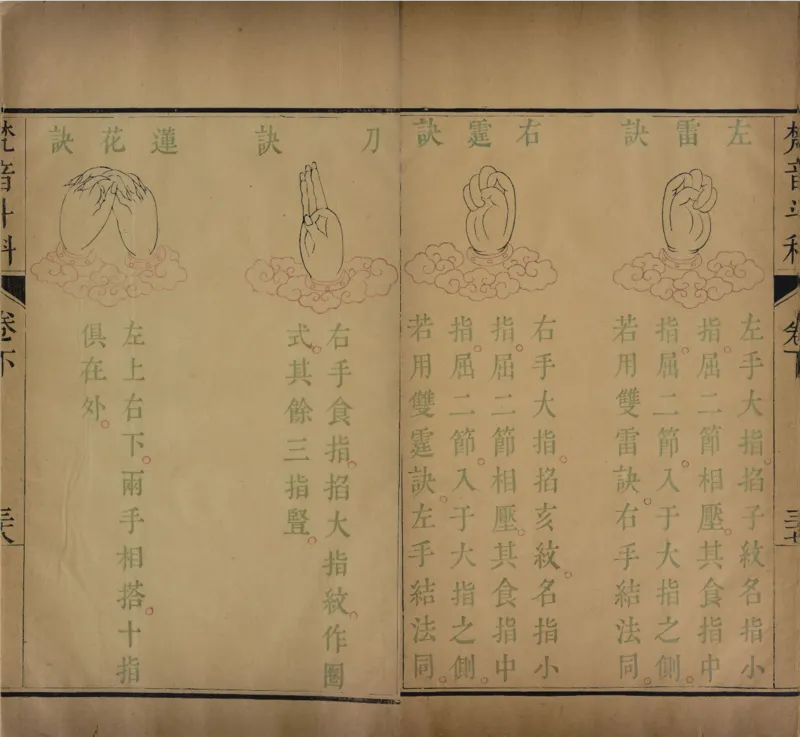 梵音斗科
卷下
三十七
左雷訣
左手大指。掐子紋名指小
指。屈二節相壓。其食指中
指。屈二節。入于大指之側。
若用雙雷訣。右手結法同。
右霆訣
右手大指。掐亥紋。名指小
指。屈二節相壓。其食指中
指。屈二節。入于大指之側。
若用雙霆訣。左手結法同。
刀訣
右手食指。掐大指紋。作圈
式。其餘三指豎。
蓮花訣
左上右下。兩手相搭。十指
俱在外。
梵音斗科
卷下
三十八